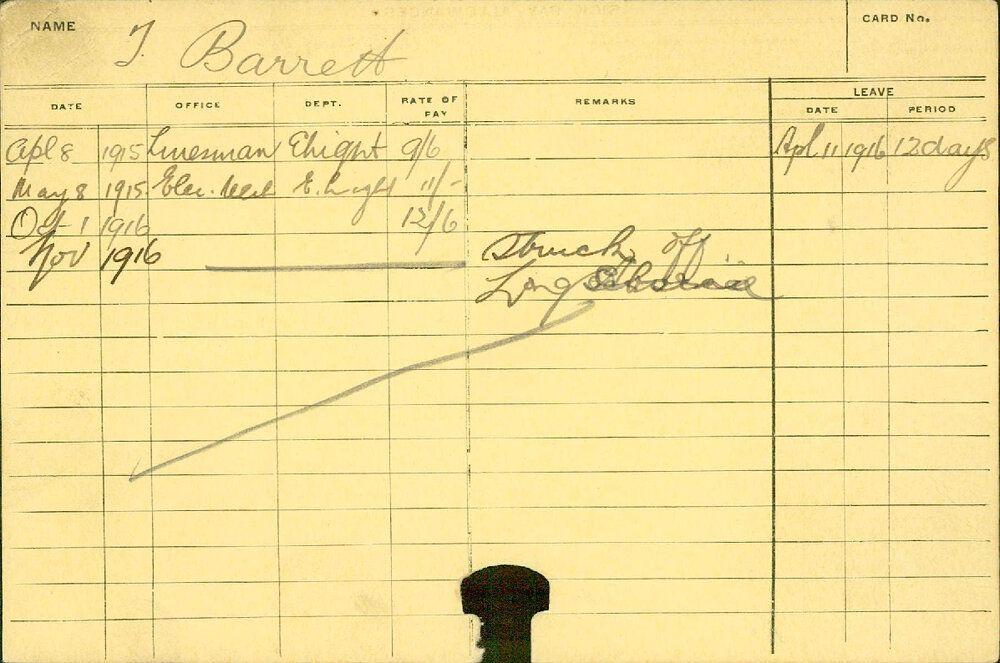 NAME T. Barrett CARD No.
LEAVE
DATE OFFICE DEPT. RATE OF PAY REMARKS DATE PERIOD
Apl 8 1915 Linesman Elight 9/6 Apl. 11 1916 12 days
May 8 1915 Elec. Mech E. Light 11/-
Oct 1 1916 12/6
Nov 1916 Struck off
Long